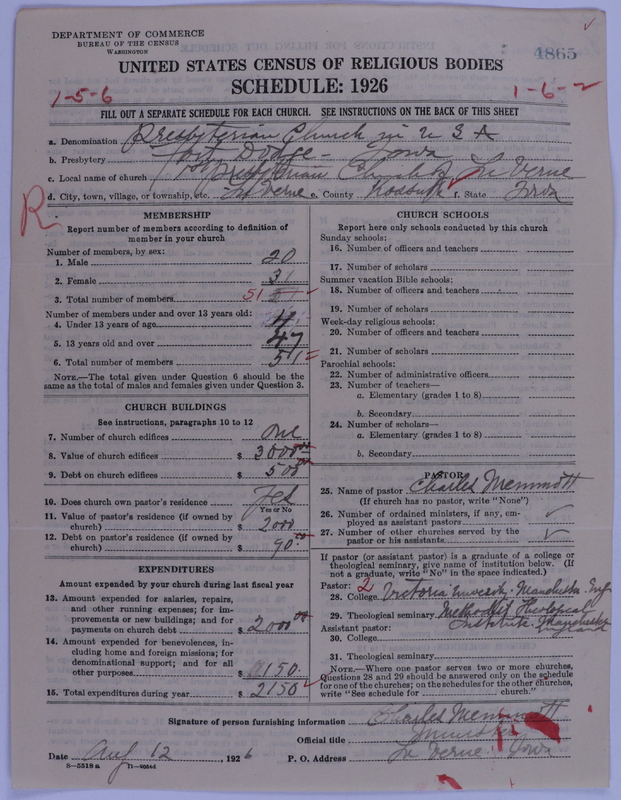 DEPARTMENT OF COMMERCE
BUREAU OF THE CENSUS
WASHINGTON
4865
UNITED STATES CENSUS OF RELIGIOUS BODIES
SCHEDULE: 1926
1-5-6
1-6-2
FILL OUT A SEPARATE SCHEDULE FOR EACH CHURCH. SEE INSTRUCTIONS ON THE BACK OF THIS SHEET
a. Denomination Presbyterian Church in U S A
b. Presbytery Fort Dodge - Iowa
c. Local name of church Presbyterian Church Lu Verne
d. City, town, village, or township, etc. Lu Verne e. County Kossuth f. State Iowa
R
MEMBERSHIP
Report number of members according to definition of
member in your church
Number of members, by sex:
1. Male 20
2. Female 31
3. Total number of members 51 51
Number of members under and over 13 years old:
4. Under 13 years of age 4
5. 13 years old and over 47
6. Total number of members 51
NOTE.—The total given under Question 6 should be the
same as the total of males and females given under Question 3.
CHURCH BUILDINGS
See instructions, paragraphs 10 to 12
7. Number of church edifices one
8. Value of church edifices $ 3000 00
9. Debt on church edifices $ 500 00
10. Does church own pastor's residence Yes
Yes or No
11. Value of pastor's residence (if owned by
church) $ 2000
12. Debt on pastor's residence (if owned by
church) $ 90.00
EXPENDITURES
Amount expended by your church during last fiscal year
13. Amount expended for salaries, repairs,
and other running expenses; for im-
provements or new buildings; and for
payments on church debt $ 2000 00
14. Amount expended for benevolences, in-
cluding home and foreign missions; for
denominational support; and for all
other purposes $ 150
15. Total expenditures during year $ 2150
CHURCH SCHOOLS
Report here only schools conducted by this church
Sunday schools:
16. Number of officers and teachers
17. Number of scholars
Summer vacation Bible schools:
18. Number of officers and teachers
19. Number of scholars
Week-day religious schools:
20. Number of officers and teachers
21. Number of scholars
Parochial schools:
22. Number of administrative officers
23. Number of teachers—
a. Elementary (grades 1 to 8)
b. Secondary
24. Number of scholars—
a. Elementary (grades 1 to 8)
b. Secondary
PASTOR
25. Name of pastor Charles Memmott
(If church has no pastor, write "None")
26. Number of ordained ministers, if any, em-
ployed as assistant pastors
27. Number of other churches served by the
pastor or his assistants
If pastor (or assistant pastor) is a graduate of a college or
theological seminary, give name of institution below. (If
not a graduate, write "No" in the space indicated.)
Pastor: 2
28. College Victoria University. Manchester. Eng
29. Theological seminary Methodist Theological
Assistant pastor: Institute. Manchester
30. College England
31. Theological seminary
NOTE.—Where one pastor serves two or more churches,
Questions 28 and 29 should be answered only on the schedule
for one of the churches; on the schedules for the other churches,
write "See schedule for church."
Signature of person furnishing information Charles Memmott
Official title Minister
Date Aug 12 1926 P. O. Address Lu Verne Iowa
8—5518 a